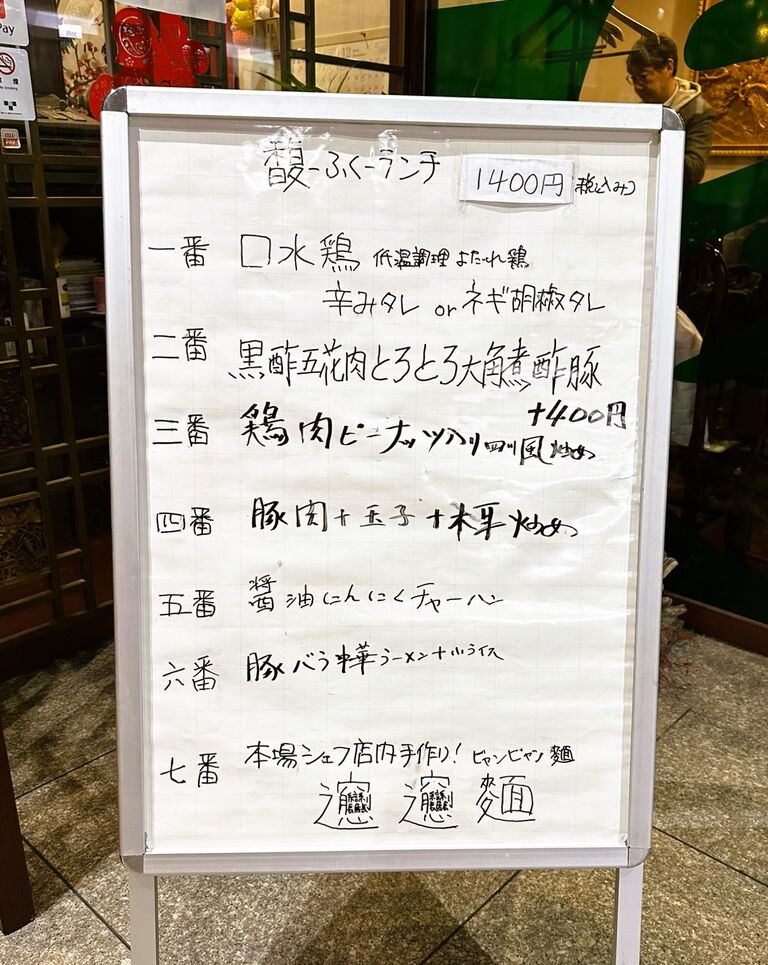 Pay
No Smoking
au
PAY
12
馥-ふく-ランチ 1400円 税込み
一番 口水鶏 低温調理 よだれ鶏
辛みタレ or ネギ胡椒タレ
二番 黒酢五花肉とろとろ大角煮酢豚
+400円
三番 鶏肉ピーナッツ入り四川風炒め
四番 豚肉+玉子+木耳炒め
五番 醤油にんにくチャーハン
六番 豚バラ中華ラーメン+小ライス
七番 本場シェフ店内手作り! ビャンビャン麵
𰻞𰻞麵